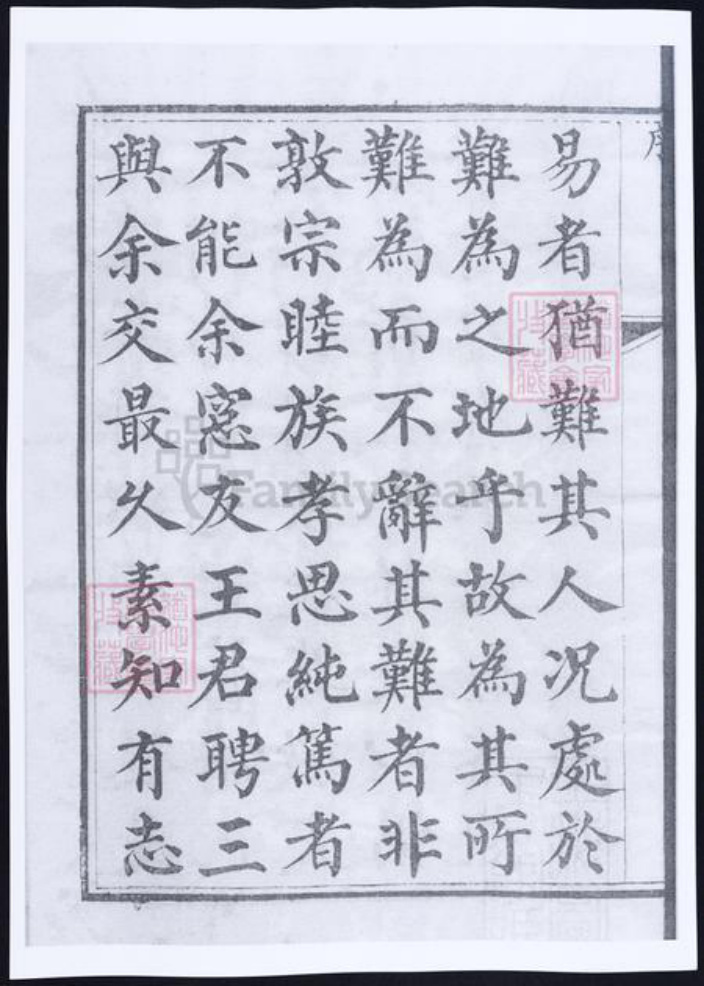 易者猶難其人况處於
難為之地乎故為其所
難為而不辭其難者非
敦宗睦族孝思純篤者
不能余窓友王君聘三
與余交最久素知有志
序
FamilySearch